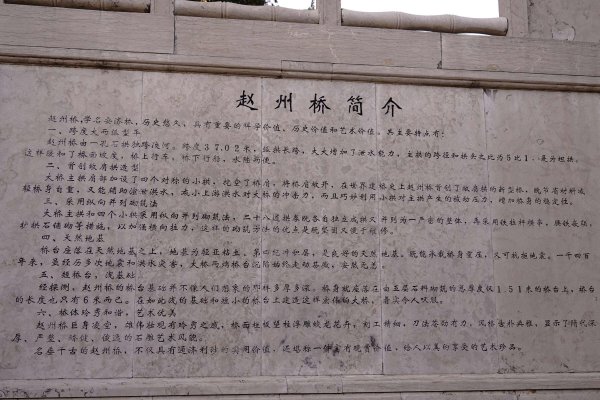 赵州桥简介
赵州桥,学名安济桥,历史悠久,具有重要的科学价值、历史价值和艺术价值。其主要特点有:
一、跨度大而弧型平
赵州桥由一孔石拱独跨洨河。跨度37.02米,弧拱长跨,大大增加了泄水能力。主拱的跨径和拱矢之比为5比1,是为坦拱。
这样缓和了桥面坡度,桥上行车,桥下行船,水陆两便。
二、首创敞肩拱造型
大桥主拱肩部加设了四个对称的小拱,挖空了桥肩,将桥肩敞开,在世界建桥史上赵州桥首创了敞肩拱的新型桥,既节省材料减
轻桥身自重,又能辅助泄泄洪水,减小上游洪水对大桥的冲击力,而且巧妙利用小拱对主拱产生的被动压力,增加桥身的稳定性。
三、采用纵向并列砌筑法
大桥主拱和四个小拱采用纵向并列砌筑法,二十八道拱券既各自独立成拱又并列为一严密的整体,再采用铁拉杆横串,腰铁嵌联,
护拱石铺砌等措施,以加强横向拉力,这样的砌筑法的优点是既坚固又便于维修。
四、天然地基
桥台座落在天然地基之上,地基为轻亚粘土,第四纪冲积层,是良好的天然地基,既能承载桥身重压,又可抗拒地震。一千四百
年来,虽经历多次地震和洪水灾害,大桥两端桥台沉陷始终走动甚微,安然无恙。
五、短桥台,浅基础。
经探测,赵州桥的桥台基础并不像人们想象的那样多厚多深。桥身就座落在由五层石料砌筑的总厚度仅1.51米的桥台上,桥台
的长度也只有5米而已。在如此浅的基础和短小的桥台上建造这样宏伟的大桥,着实令人叹服。
六、桥体玲秀和谐,艺术优美
赵州桥巨身凌空,雄伟独观有玲秀之波,桥面栏板望柱浮雕蛟龙花卉,刻工精细,刀法苍劲有力,风格古朴典雅,显示了隋代深
厚、严整、矫健、俊逸的石雕艺术风貌。
名垂千古的赵州桥,不仅具有通济利涉的实用价值,还堪称一件富有观赏价值,给人以美的享受的艺术珍品。